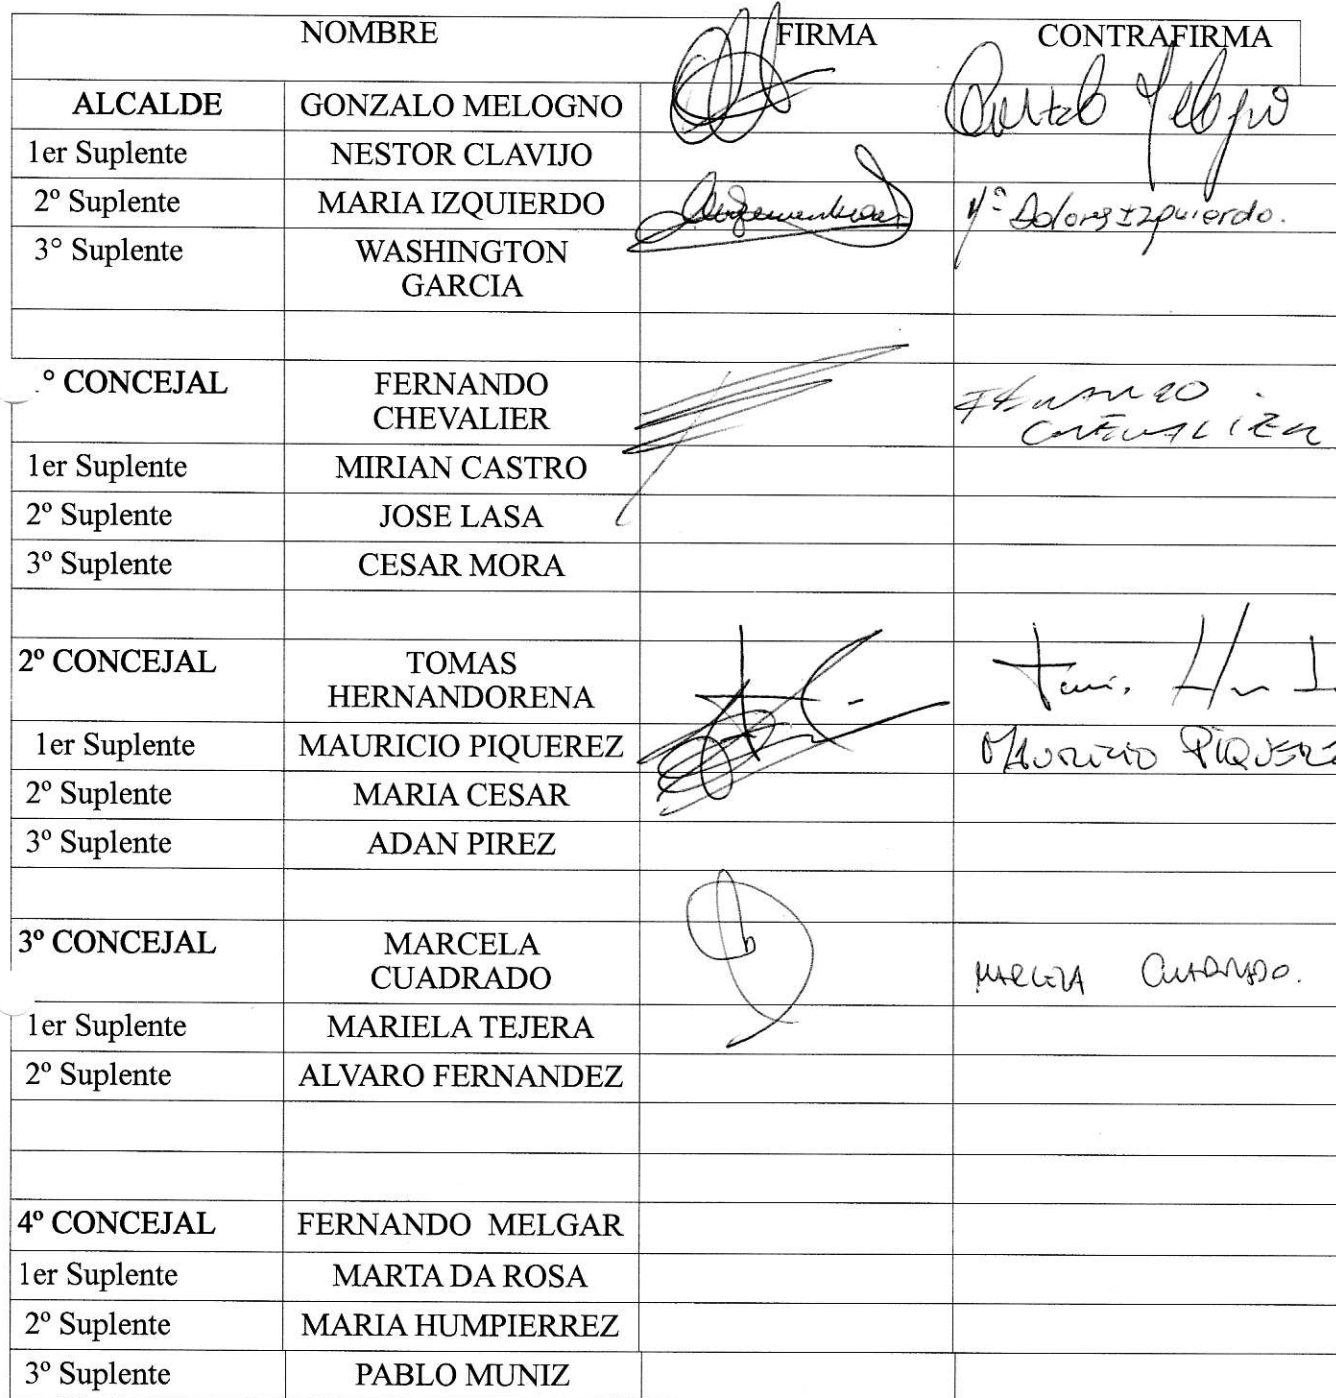 NOMBRE FIRMA CONTRAFIRMA
ALCALDE GONZALO MELOGNO Gonzalo Melogno
1er Suplente NESTOR CLAVIJO
2º Suplente MARIA IZQUIERDO Mª Dolores Izquierdo.
3° Suplente WASHINGTON
GARCIA
° CONCEJAL FERNANDO FERNANDO
CHEVALIER CHEVALIER
1er Suplente MIRIAN CASTRO
2º Suplente JOSE LASA
3º Suplente CESAR MORA
2º CONCEJAL TOMAS
HERNANDORENA
1er Suplente MAURICIO PIQUEREZ MAURICIO PIQUEREZ
2º Suplente MARIA CESAR
3º Suplente ADAN PIREZ
3º CONCEJAL MARCELA
CUADRADO MARCELA CUADRADO.
1er Suplente MARIELA TEJERA
2º Suplente ALVARO FERNANDEZ
4º CONCEJAL FERNANDO MELGAR
1er Suplente MARTA DA ROSA
2º Suplente MARIA HUMPIERREZ
3º Suplente PABLO MUNIZ